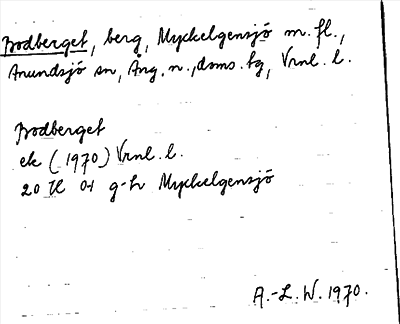 Bodberget, berg, Myckelgensjö m.fl.,
Anundsjö sn, Ång. n., dsms. tg, Vrnl. l.
Bodberget
ek (1970) Vrnl. l.
20 H 01 g-h Myckelgensjö
A.-L. W. 1970.